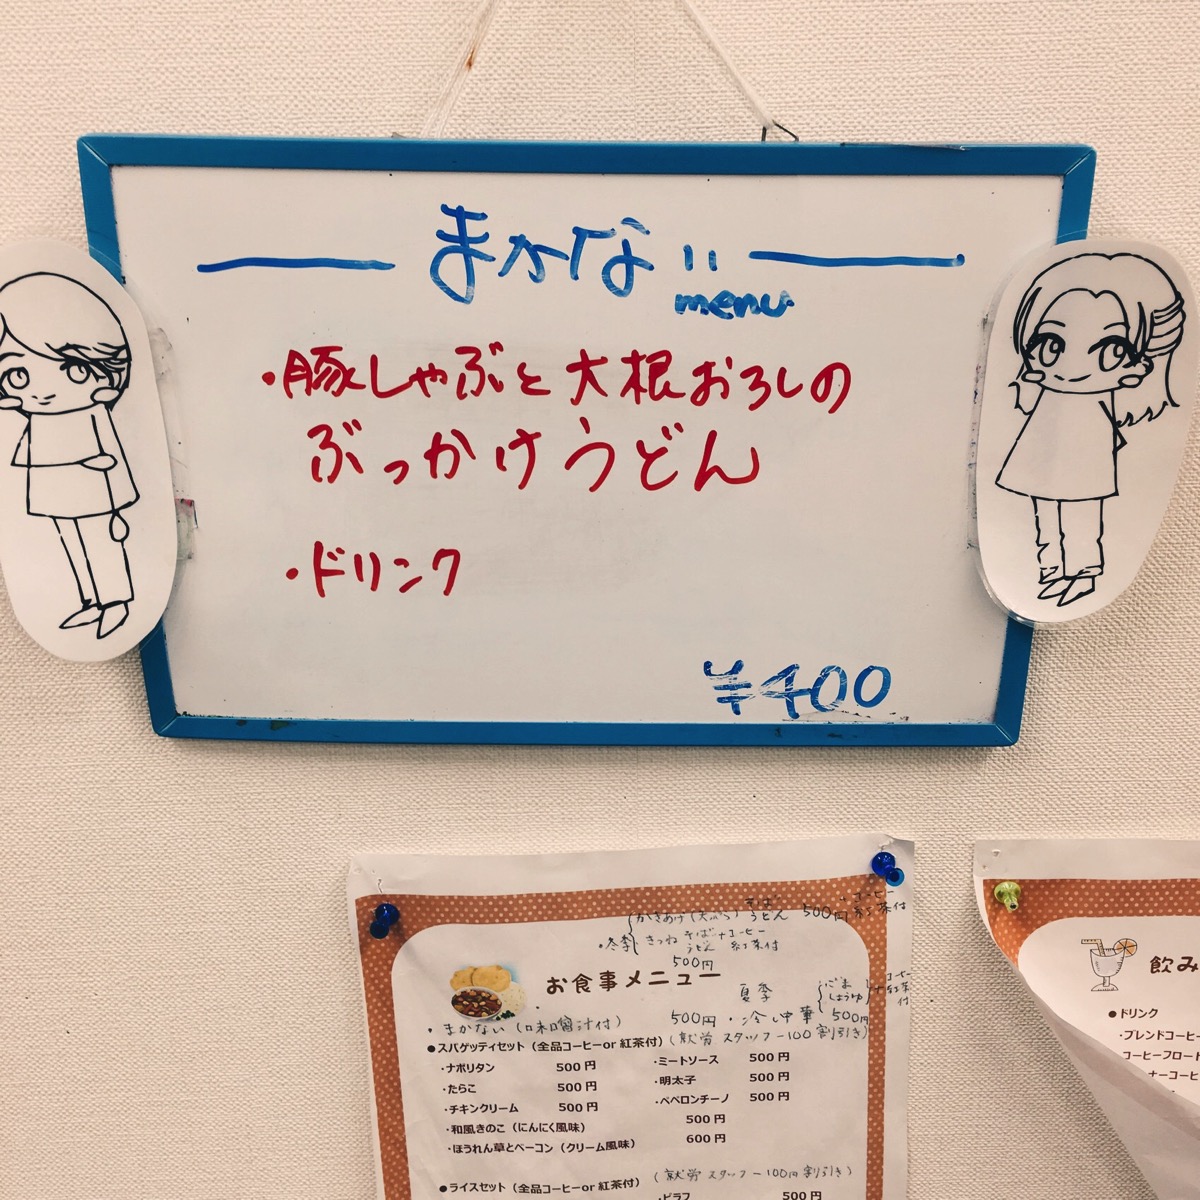 まかない
menu
・豚しゃぶと大根おろしの
ぶっかけうどん
・ドリンク
¥400
かきあげ(天ぷら) そば うどん 500円 +コーヒー 紅茶付
・冬季 きつね そば うどん +コーヒー 紅茶付
500円
お食事メニュー
夏季 ごま しょうゆ +コーヒー 紅茶付
・まかない( 付) 500円 ・冷し中華 500円
(就労スタッフ-100割引き)
●スパゲッティセット(全品コーヒーor 紅茶付)
・ナポリタン 500円 ・ミートソース 500円
・たらこ 500円 ・明太子 500円
・チキンクリーム 500円 ・ペペロンチーノ 500円
・和風きのこ(にんにく風味) 500円
・ほうれん草とベーコン(クリーム風味) 600円
(就労スタッフ-100円割引き)
●ライスセット(全品コーヒーor 紅茶付)
・ピラフ 500円
飲み
●ドリンク
・ブレンドコーヒー
コーヒーフロート
ナーコーヒ